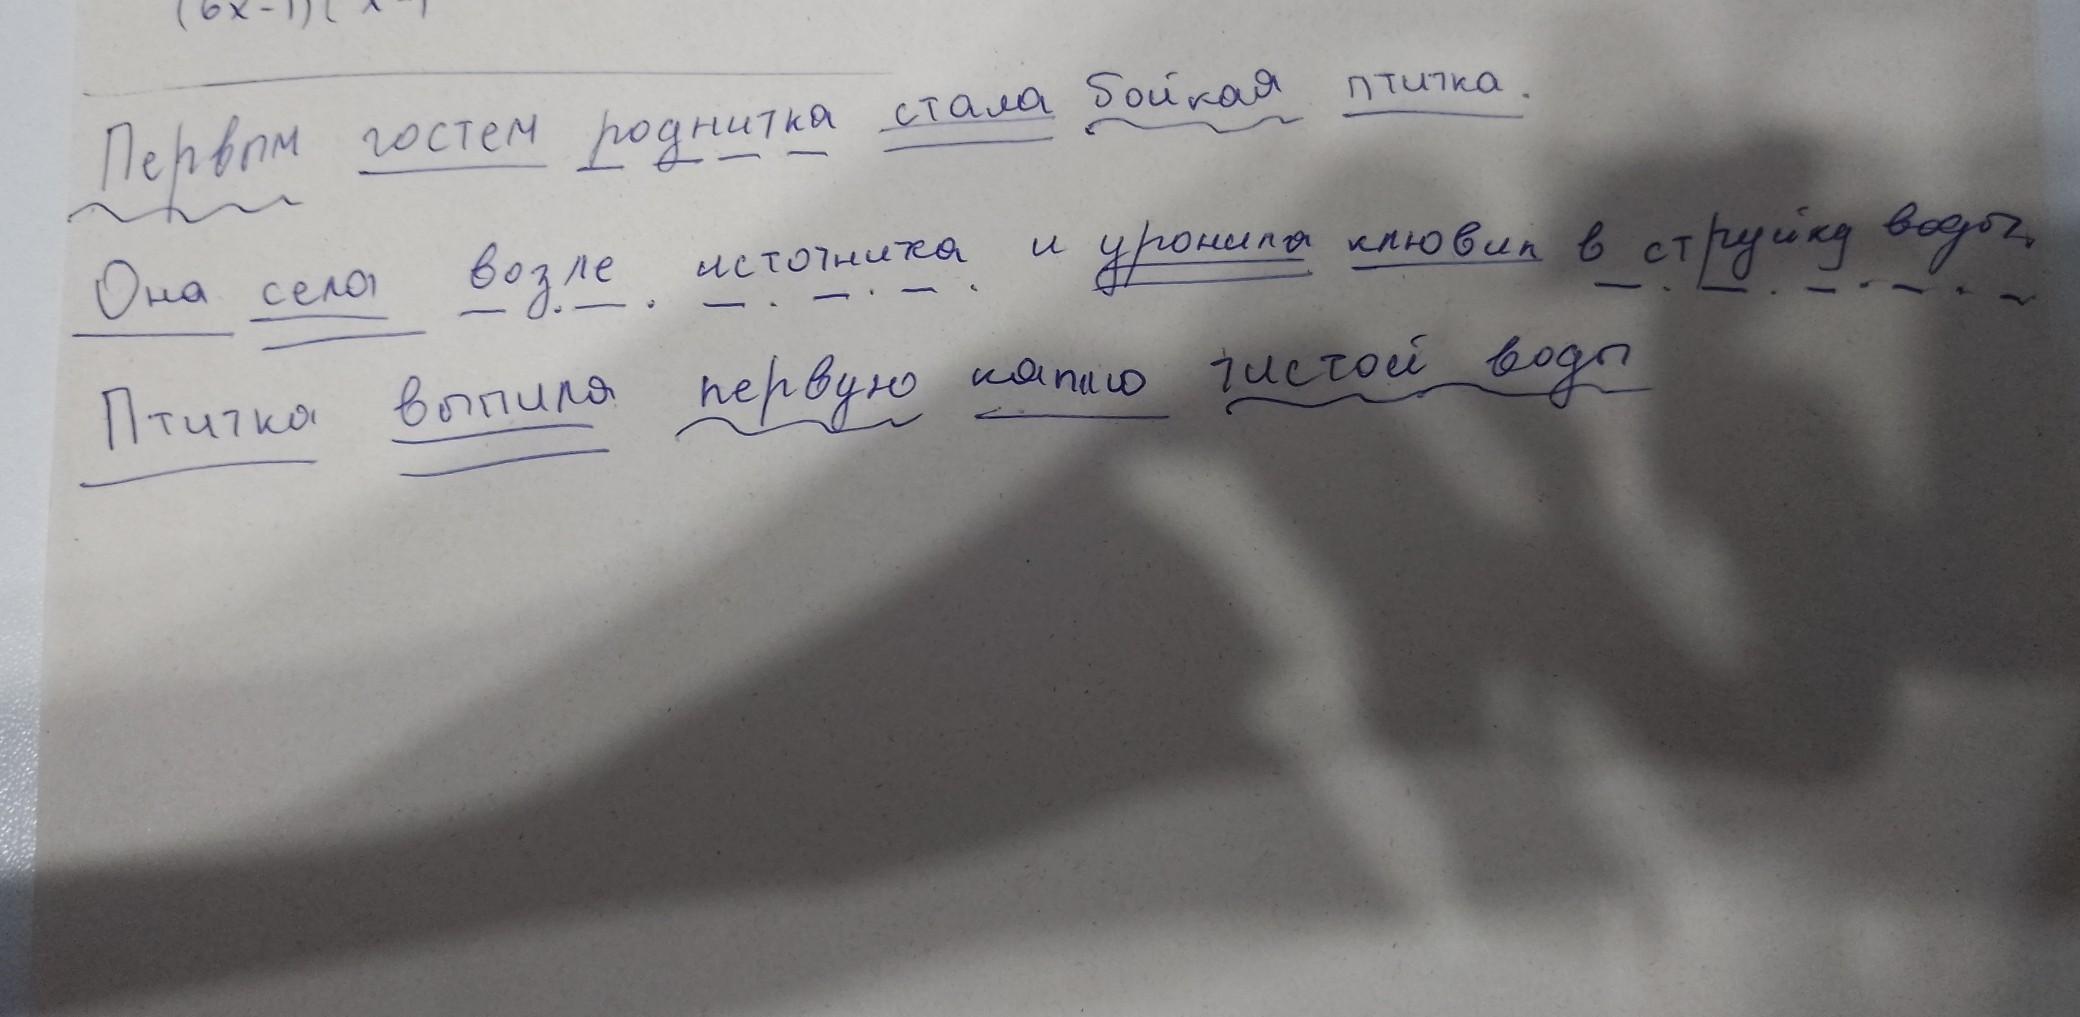 (6x-1)(x-1
Первым гостем родничка стала бойкая птичка.
Она села возле источника и уронила клювик в струйку воды.
Птичка выпила первую каплю чистой воды